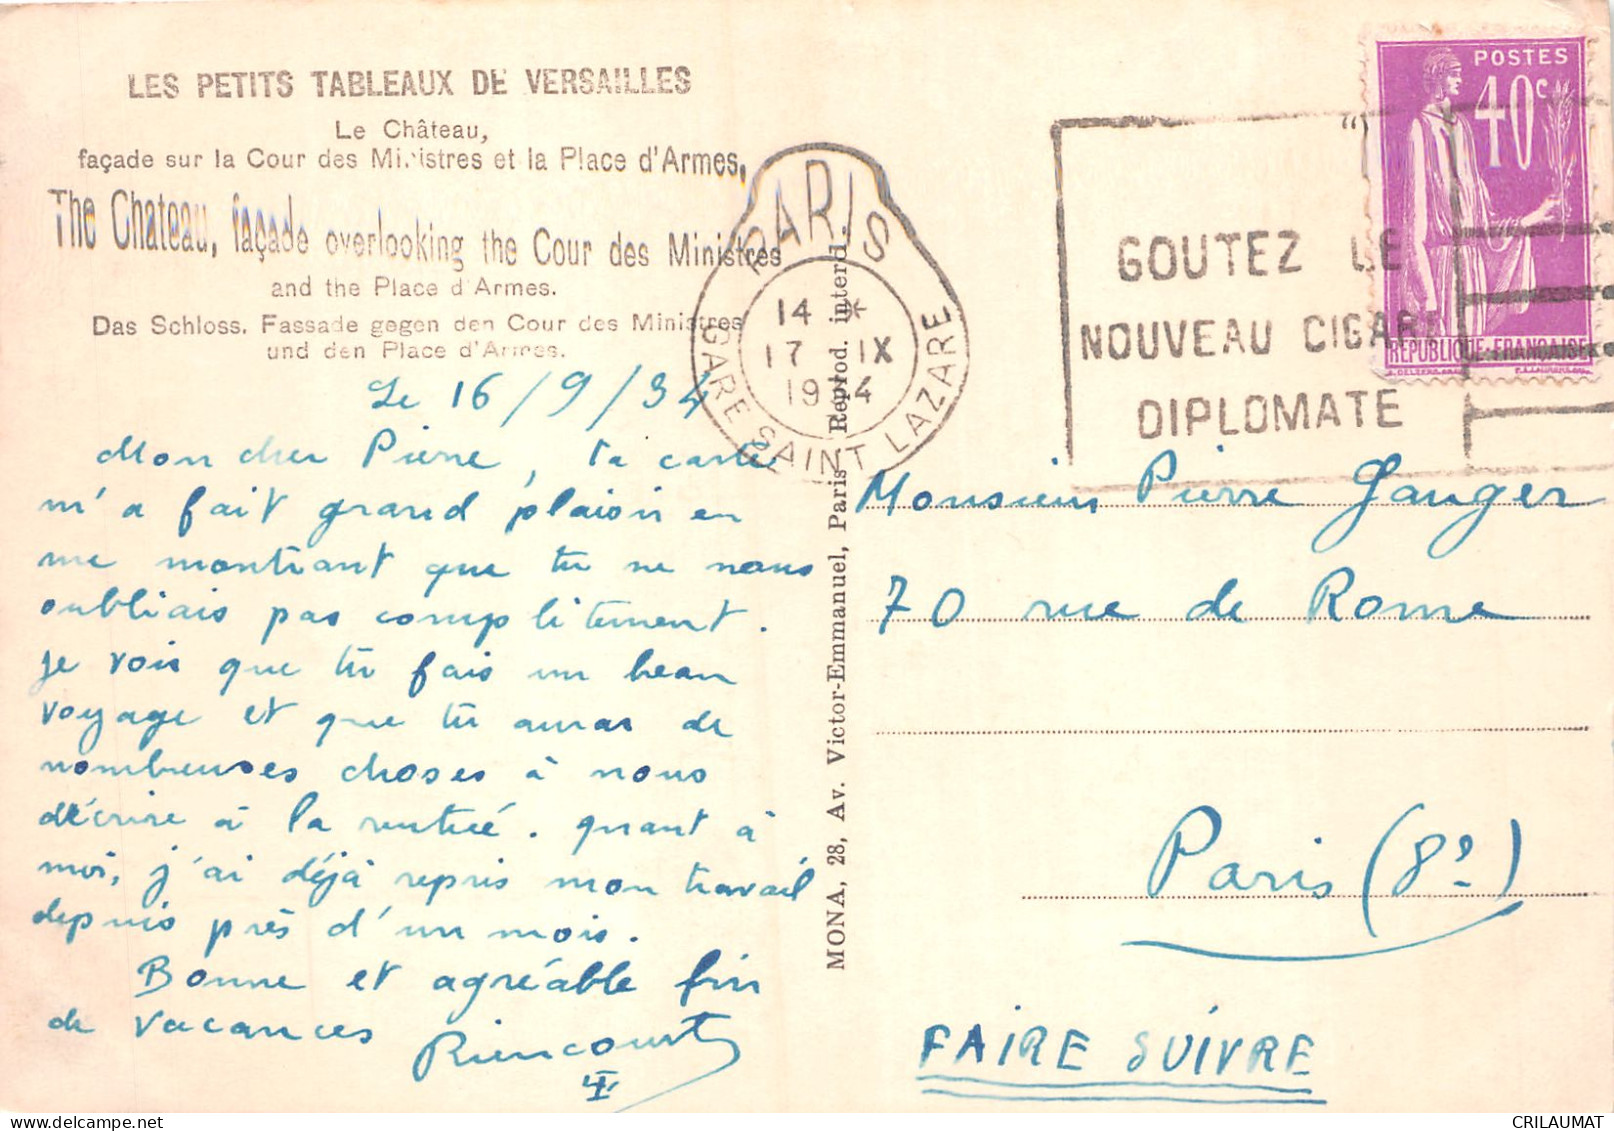 LES PETITS TABLEAUX DE VERSAILLES
Le Château,
façade sur la Cour des Ministres et la Place d'Armes,
The Chateau, façade overlooking the Cour des Ministres
and the Place d'Armes.
Das Schloss. Fassade gegen den Cour des Ministres
und den Place d'Armes.
Le 16/9/34
Mon cher Pierre, ta carte
m'a fait grand plaisir en
me montrant que tu ne nous
oubliais pas complitement.
Je vois que tu fais un beau
voyage et que tu auras de
nombreuses choses à nous
décrire à la rentrée. quant à
moi, j'ai déjà repris mon travail
depuis près d'un mois.
Bonne et agréable fin
de vacances
Riencourt
MONA, 28, Av. Victor-Emmanuel, Paris - Reprod. interd.
PARIS
14 *
17 - IX
1934
GARE SAINT LAZARE
GOUTEZ LE
NOUVEAU CIGARE
DIPLOMATE
POSTES
40c
REPUBLIQUE-FRANÇAISE
Monsieur Pierre Gauger
70 rue de Rome
Paris (8e)
FAIRE SUIVRE
CRILAUMAT